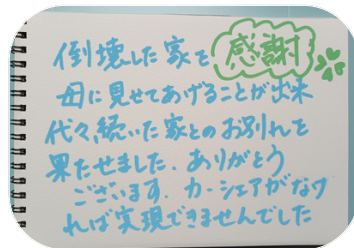 倒壊した家を 感謝
母に見せてあげることが出来
代々続いた家とのお別れを
果たせました。ありがとう
ございます。カーシェアがなけ
れば実現できませんでした